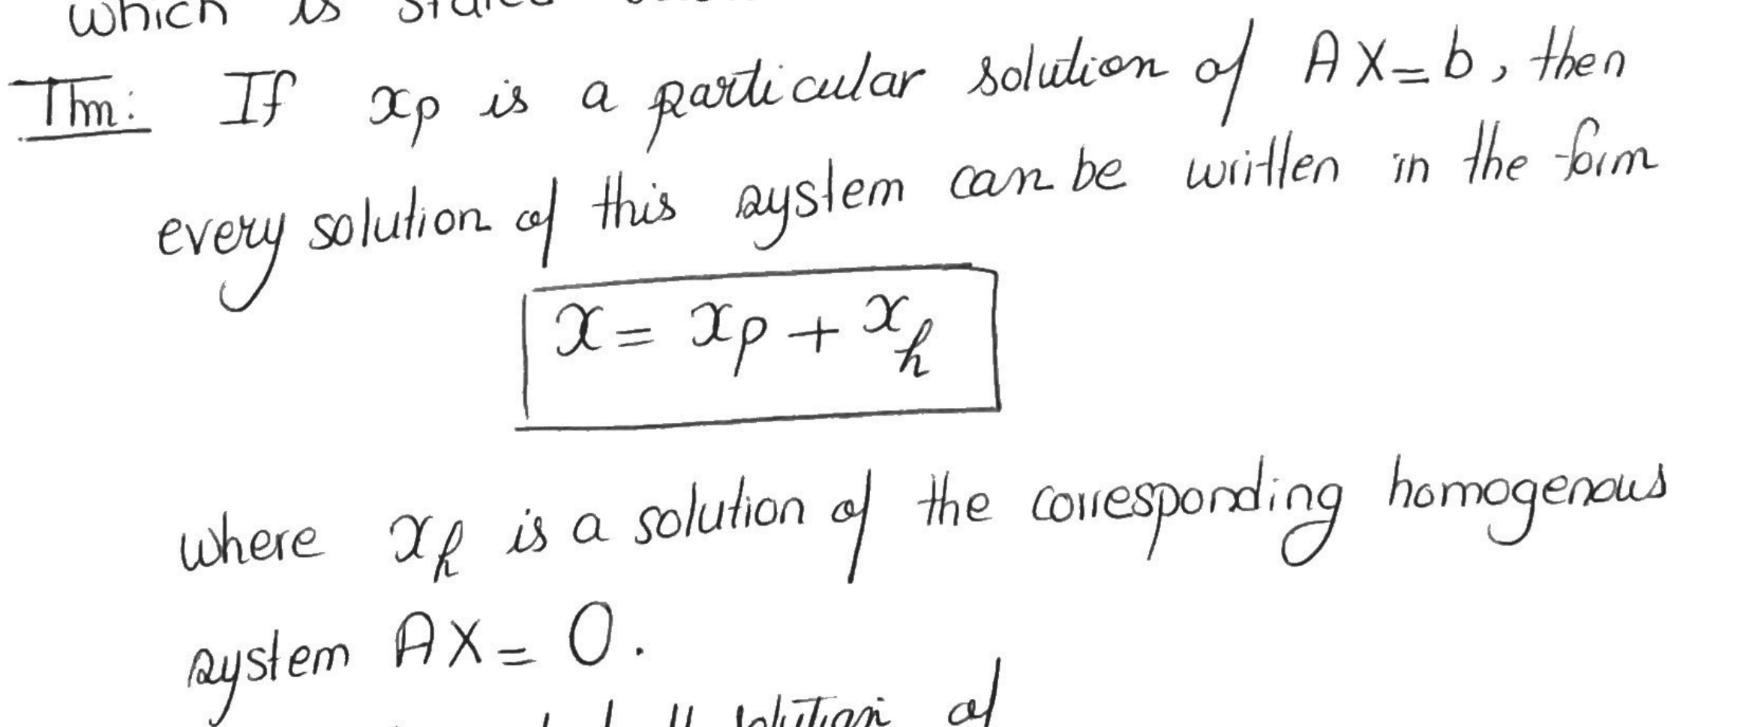 which is
Thm: If xp is a particular solution of AX=b, then
every solution of this system can be written in the form
x = xp + xh
where xh is a solution of the corresponding homogenous
system AX = 0.
solution of